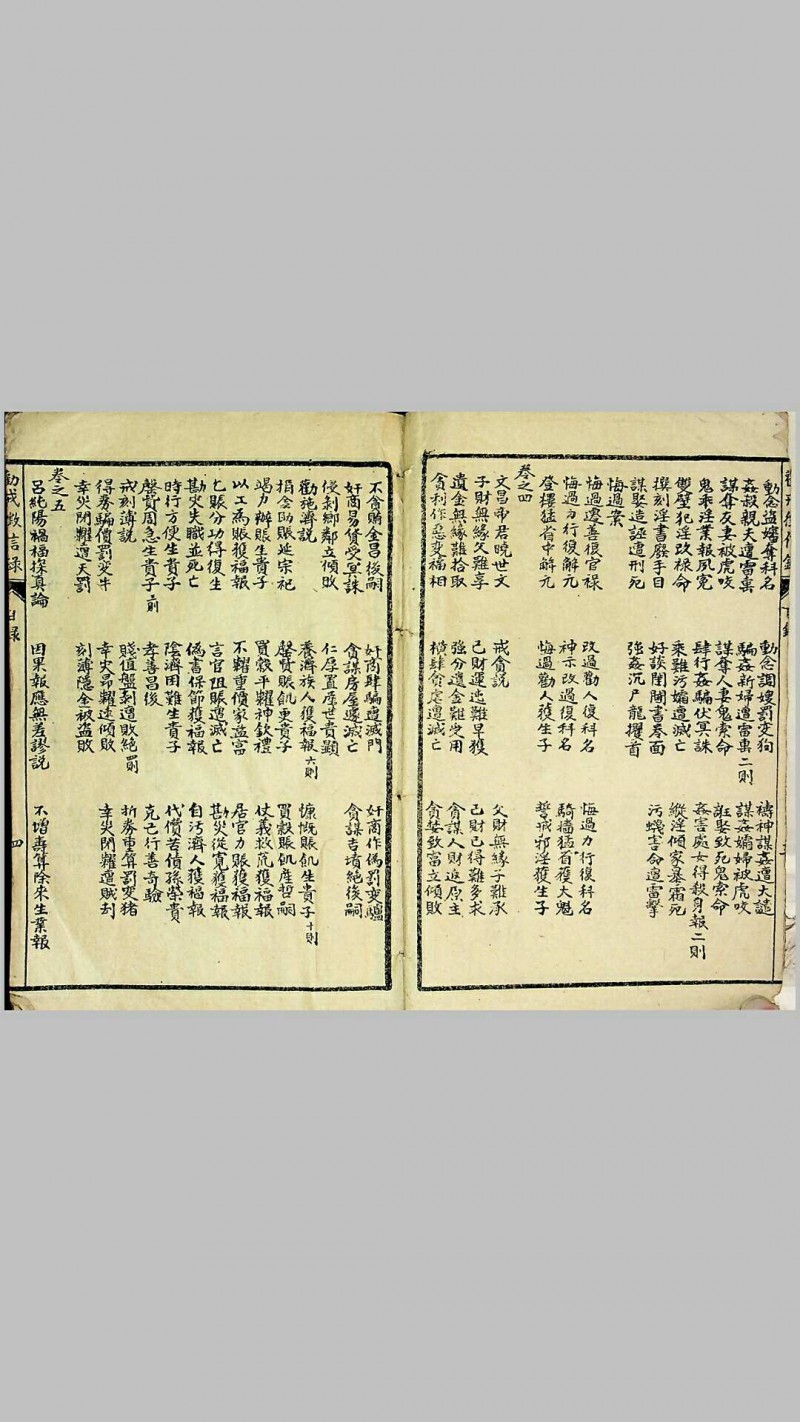 動念盜孀奪科名 動念調嫂罰变狗 禱神謀姦遭大譴
姦殺親夫遭雷擊 騙姦新婦遭雷擊二則 謀姦孀婦被虎咬
謀奪友妻被虎咬 謀奪人妻鬼索命 誑娶致死鬼索命
鬼乘淫業報夙寃 肆行姦騙伏冥誅 姦害處女得殺身報二則
鑿壁犯淫改祿命 乘難污孀遭滅亡 縱淫傾家暴霜死
撰刻淫書廢手目 好談閨閫書春面 污衊害命遭雷擊
謀娶造誣遭刑死 強姦沉尸龍攫首
悔過案
悔過遷善復官祿 改過勸人復科名 悔過力行復科名
悔過力行復解元 神示改過復科名 騎牆猛省獲大魁
登樓猛省中解元 悔過勸人獲生子 誓戒邪淫獲生子
卷之四
文昌帝君曉世文 戒貪說
子財無緣父難享 己財運迍難早獲 父財無緣子難承
遺金無緣難拾取 強分遺金難受用 己財已得難多求
貪利作惡变福相 橫肆貪虐遭滅亡 貪謀人財返原主
貪婪致富立傾敗
不貪賂金昌後嗣 奸商肆騙遭滅門 奸商作偽罰变驢
奸商易貨受冥誅 貪謀房屋遽滅亡 貪謀吉墳絕後嗣
侵剝鄉鄰立傾敗 仁厚置產世貴顯
勸施濟說 養濟族人獲福報六則 慷慨賑飢生貴子十則
捐金助賑延宗祀 罄貲賑飢更貴子 買穀賑飢產哲嗣
竭力辦賑生貴子 買穀平糶神欽禮 仗義救荒獲福報
以工為賑獲福報 不糶重價家益富 居官力賑獲福報
匕賑分功得復生 言官阻賑遭滅亡 勘災從寬獲福報
勘災失職並死亡 偽書保節獲福報 自污濟人獲福報
時行方便生貴子 陰濟困難生貴子 代償苦債孫榮貴
罄貲周急生貴子二則 孝善昌後 克己行善奇驗
戒刻薄說 賤值盤剝遭敗絕二則 折券重算罰变猪
得券騙價罰变牛 幸災昂糶速傾敗 幸災閉糶遭賊刦
幸災閉糶遭天罰 刻薄隱全被盜敗
卷之五
呂純陽禍福探真論 因果報應無差謬說 不增壽算除來生業報
勸戒徵言錄 目錄 四